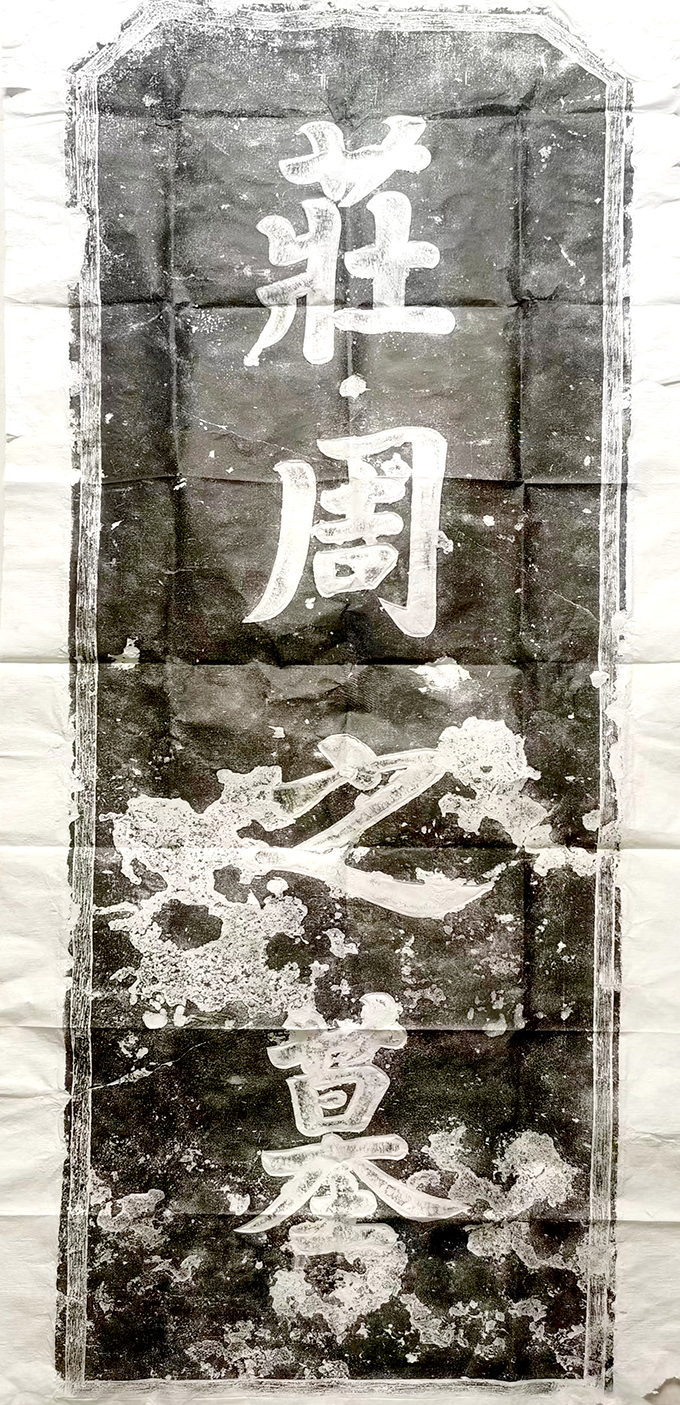 莊周之墓